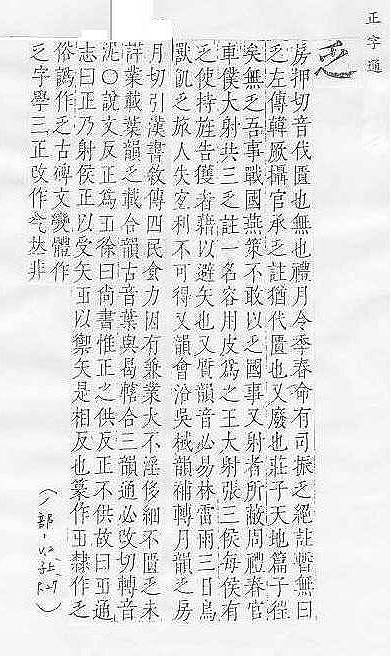 正字通
乏
房押切音伐匱也無也禮月令季春命有司振乏絕註暫無曰
乏左傳韓厥攝官承乏註猶代匱也又廢也莊子天地篇子徃
矣無乏吾事戰國燕策不敢以乏國事又射者所蔽周禮春官
車僕大射共三乏註一名容用皮爲之王大射張三侯每侯有
乏使持旌告獲者藉以避矢也又質韻音必易林雷雨三日鳥
獸飢乏旅人失宜利不可得又韻會沿吳棫韻補轉月韻乏房
月切引漢書敘傳四民食力因有兼業大不淫侈細不匱乏未
詳業載葉韻乏載合韻古音葉與曷轄合三韻通必改切轉音
泥○說文反正爲徐曰尚書惟正之供反正不供故曰通
志曰正乃射侯正以受矢以禦矢是相反也篆作隸作乏
俗譌作乏古碑文變體作
乏字學三正改作𠀤非
(ノ部-, V.2, 子上, P.27)